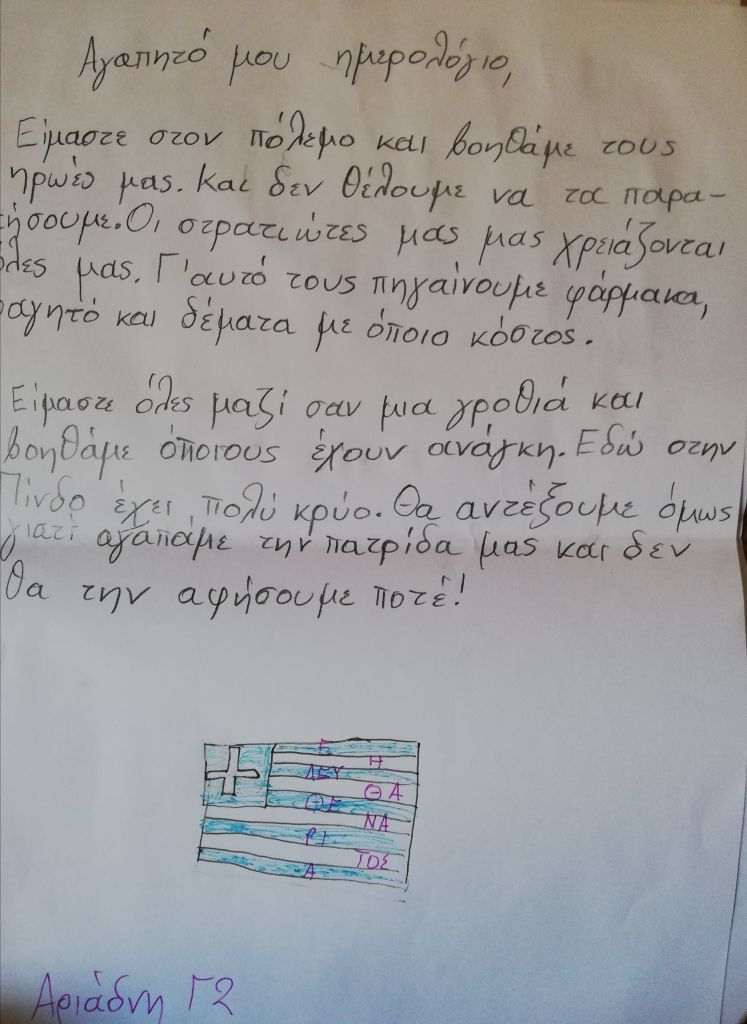 Αγαπητό μου ημερολόγιο,
Είμαστε στον πόλεμο και βοηθάμε τους
ηρωές μας. Και δεν θέλουμε να τα παρα-
τήσουμε. Οι στρατιώτες μας μας χρειάζονται
όλες μας. Γι'αυτό τους πηγαίνουμε φάρμακα,
φαγητό και δέματα με όποιο κόστος.
Είμαστε όλες μαζί σαν μια γροθιά και
βοηθάμε όποιους έχουν ανάγκη. Εδώ στην
Πίνδο έχει πολύ κρύο. Θα αντέξουμε όμως
γιατί αγαπάμε την πατρίδα μας και δεν
θα την αφήσουμε ποτέ!
Ε
ΛΕΥ
ΘΕ
ΡΙ
Α
Η
ΘΑ
ΝΑ
ΤΟΣ
Αριάδνη Γ2